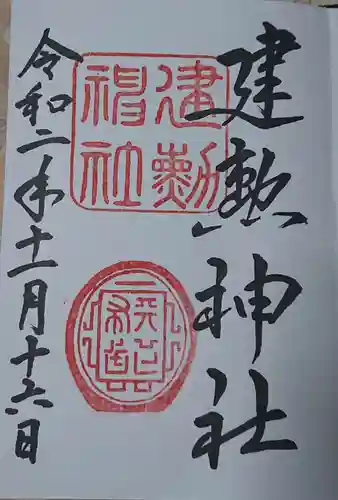 建勲神社
建勲
神社
令和二年十一月十六日